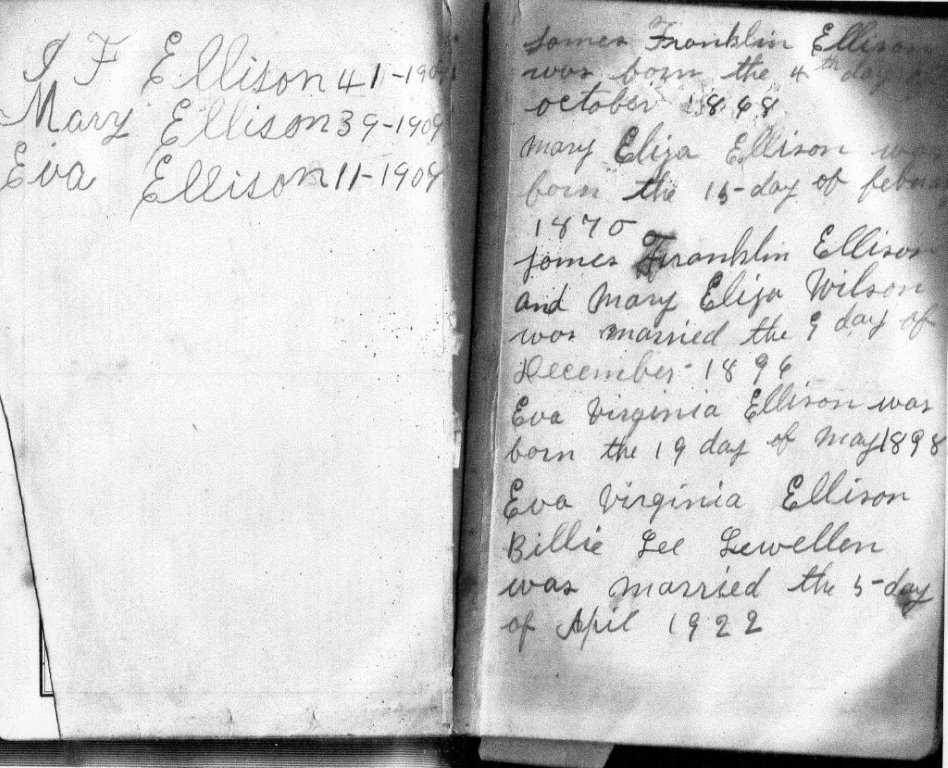 J F Ellison 41-1909
Mary Ellison 39-1909
Eva Ellison 11-1909
James Franklin Ellison
was born the 4th day
october 1868
Mary Eliza Ellison was
born the 15-day of
1870
james Franklin Ellison
and Mary Eliza Wilson
was married the 9 day of
December-1896
Eva Virginia Ellison was
born the 19 day of May 1898
Eva Virginia Ellison
Billie Lee Lewellen
was married the 5-day
of April 1922